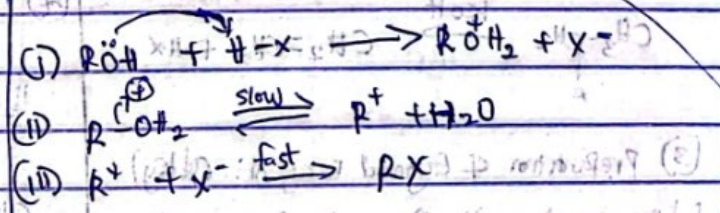 (i) RÖH + H-X ⟶ RO⁺H₂ + X⁻
(ii) R-O⁺H₂ slow ⇌ R⁺ + H₂O
(iii) R⁺ + X⁻ fast ⟶ RX